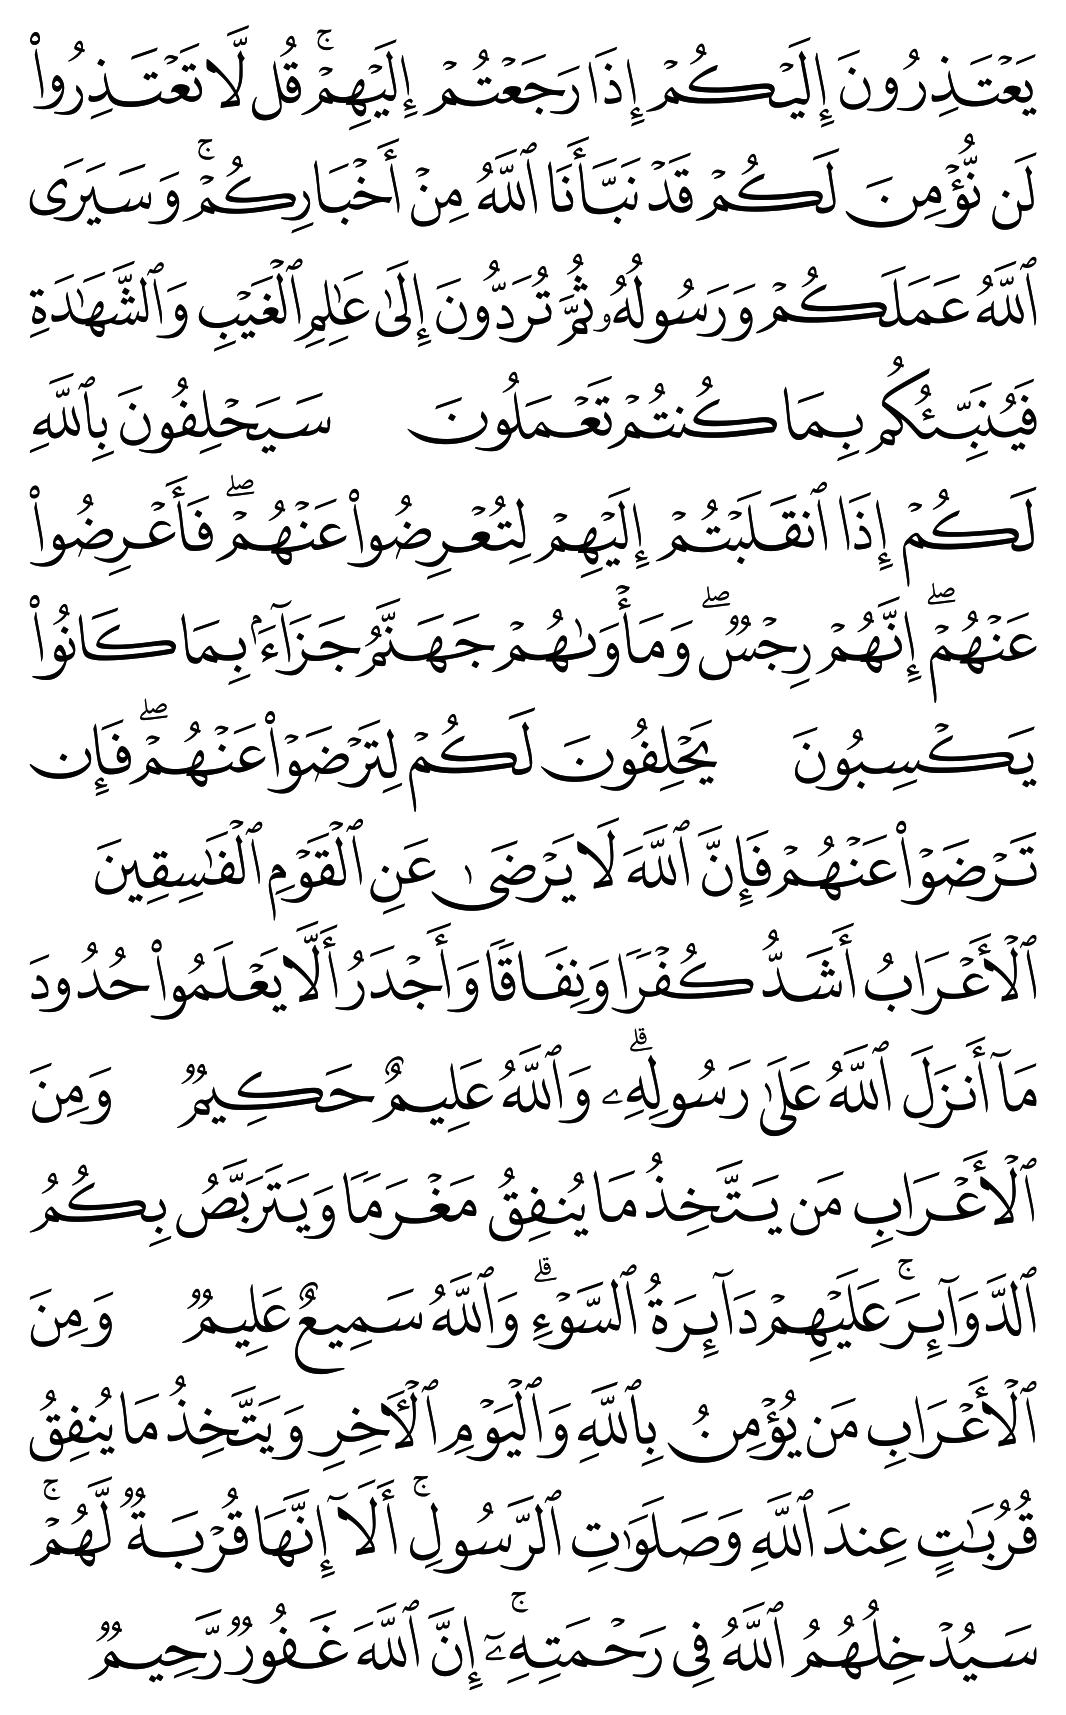 يَعۡتَذِرُونَ إِلَيۡكُمۡ إِذَا رَجَعۡتُمۡ إِلَيۡهِمۡۚ قُل لَّا تَعۡتَذِرُواْ
لَن نُّؤۡمِنَ لَكُمۡ قَدۡ نَبَّأَنَا ٱللَّهُ مِنۡ أَخۡبَارِكُمۡۚ وَسَيَرَى
ٱللَّهُ عَمَلَكُمۡ وَرَسُولُهُۥ ثُمَّ تُرَدُّونَ إِلَىٰ عَٰلِمِ ٱلۡغَيۡبِ وَٱلشَّهَٰدَةِ
فَيُنَبِّئُكُم بِمَا كُنتُمۡ تَعۡمَلُونَ سَيَحۡلِفُونَ بِٱللَّهِ
لَكُمۡ إِذَا ٱنقَلَبۡتُمۡ إِلَيۡهِمۡ لِتُعۡرِضُواْ عَنۡهُمۡۖ فَأَعۡرِضُواْ
عَنۡهُمۡۖ إِنَّهُمۡ رِجۡسٞۖ وَمَأۡوَىٰهُمۡ جَهَنَّمُ جَزَآءَۢ بِمَا كَانُواْ
يَكۡسِبُونَ يَحۡلِفُونَ لَكُمۡ لِتَرۡضَوۡاْ عَنۡهُمۡۖ فَإِن
تَرۡضَوۡاْ عَنۡهُمۡ فَإِنَّ ٱللَّهَ لَا يَرۡضَىٰ عَنِ ٱلۡقَوۡمِ ٱلۡفَٰسِقِينَ
ٱلۡأَعۡرَابُ أَشَدُّ كُفۡرٗا وَنِفَاقٗا وَأَجۡدَرُ أَلَّا يَعۡلَمُواْ حُدُودَ
مَآ أَنزَلَ ٱللَّهُ عَلَىٰ رَسُولِهِۦۗ وَٱللَّهُ عَلِيمٌ حَكِيمٞ وَمِنَ
ٱلۡأَعۡرَابِ مَن يَتَّخِذُ مَا يُنفِقُ مَغۡرَمٗا وَيَتَرَبَّصُ بِكُمُ
ٱلدَّوَآئِرَۚ عَلَيۡهِمۡ دَآئِرَةُ ٱلسَّوۡءِۗ وَٱللَّهُ سَمِيعٌ عَلِيمٞ وَمِنَ
ٱلۡأَعۡرَابِ مَن يُؤۡمِنُ بِٱللَّهِ وَٱلۡيَوۡمِ ٱلۡأٓخِرِ وَيَتَّخِذُ مَا يُنفِقُ
قُرُبَٰتٍ عِندَ ٱللَّهِ وَصَلَوَٰتِ ٱلرَّسُولِۚ أَلَآ إِنَّهَا قُرۡبَةٞ لَّهُمۡۚ
سَيُدۡخِلُهُمُ ٱللَّهُ فِي رَحۡمَتِهِۦٓۚ إِنَّ ٱللَّهَ غَفُورٞ رَّحِيمٞ